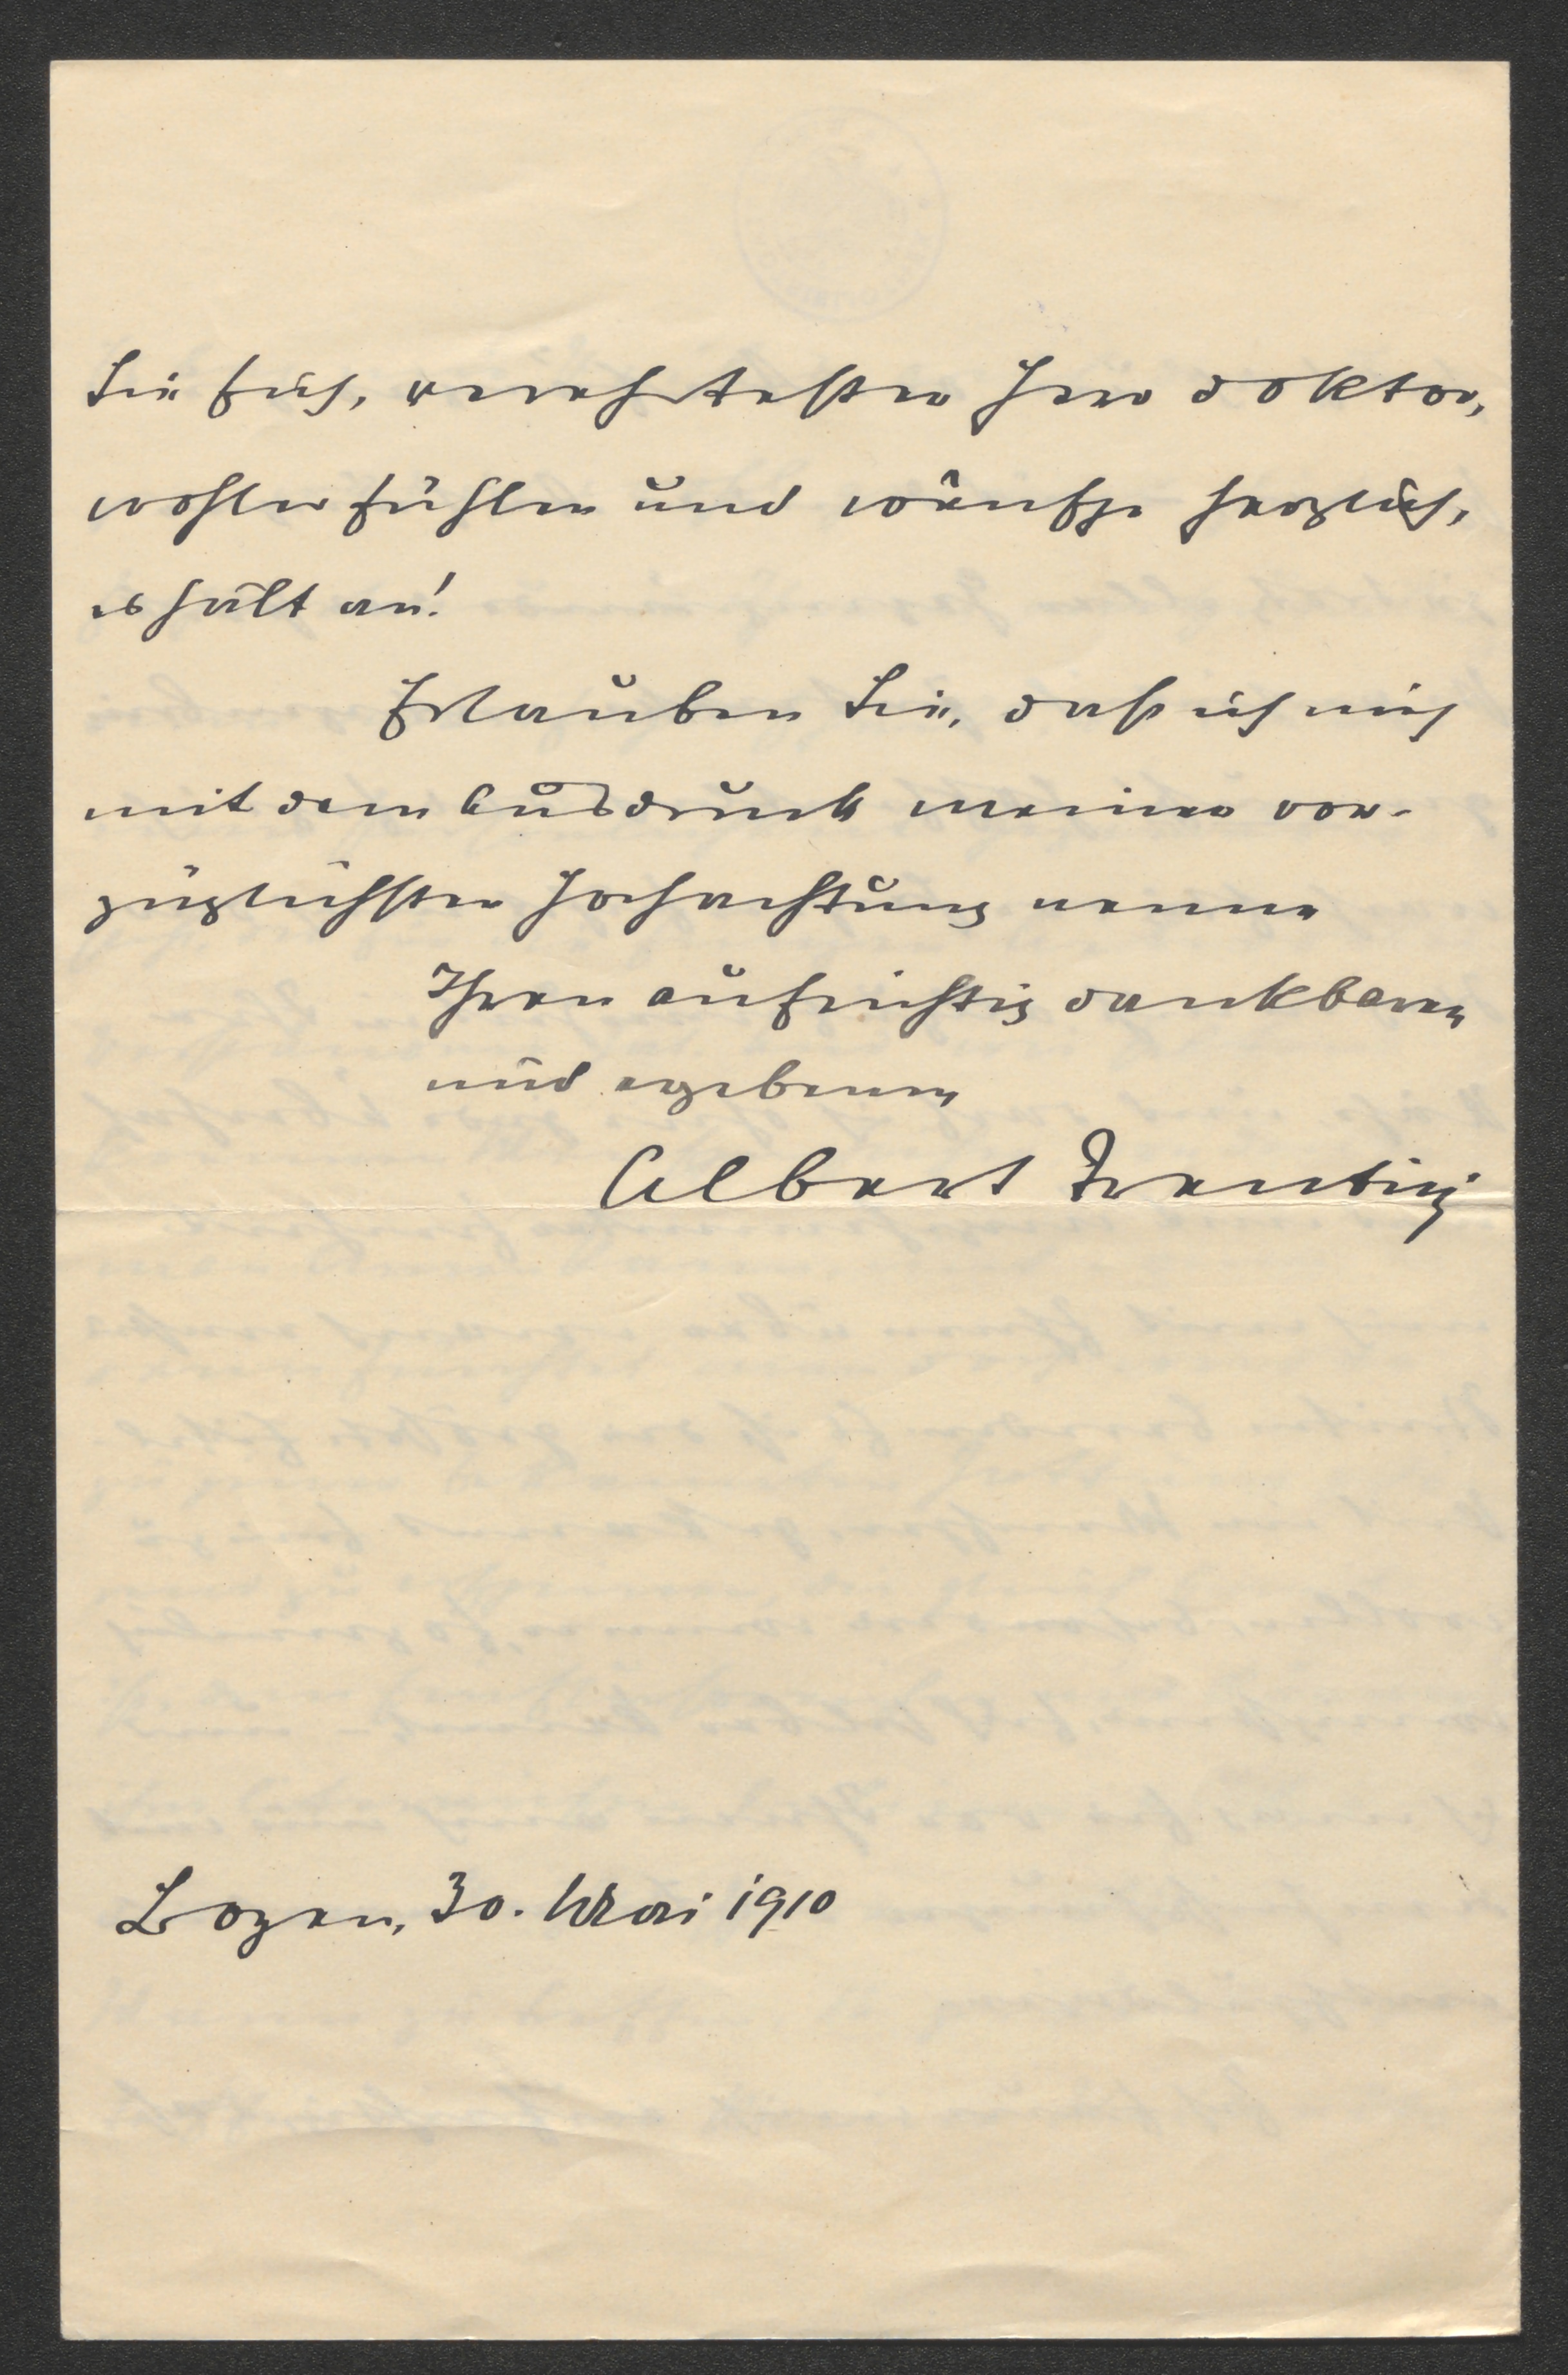 Sie sich, verehrtester Herr Doktor,
wohler fühlen und wünsche herzlich,
es hält an!
Erlauben Sie, dass ich mich
mit dem Ausdruck meiner vor-
züglichsten Hochachtung nenne
Ihren aufrichtig dankbaren
und ergebenen
Albert Trentini
Bozen, 30. Mai 1910